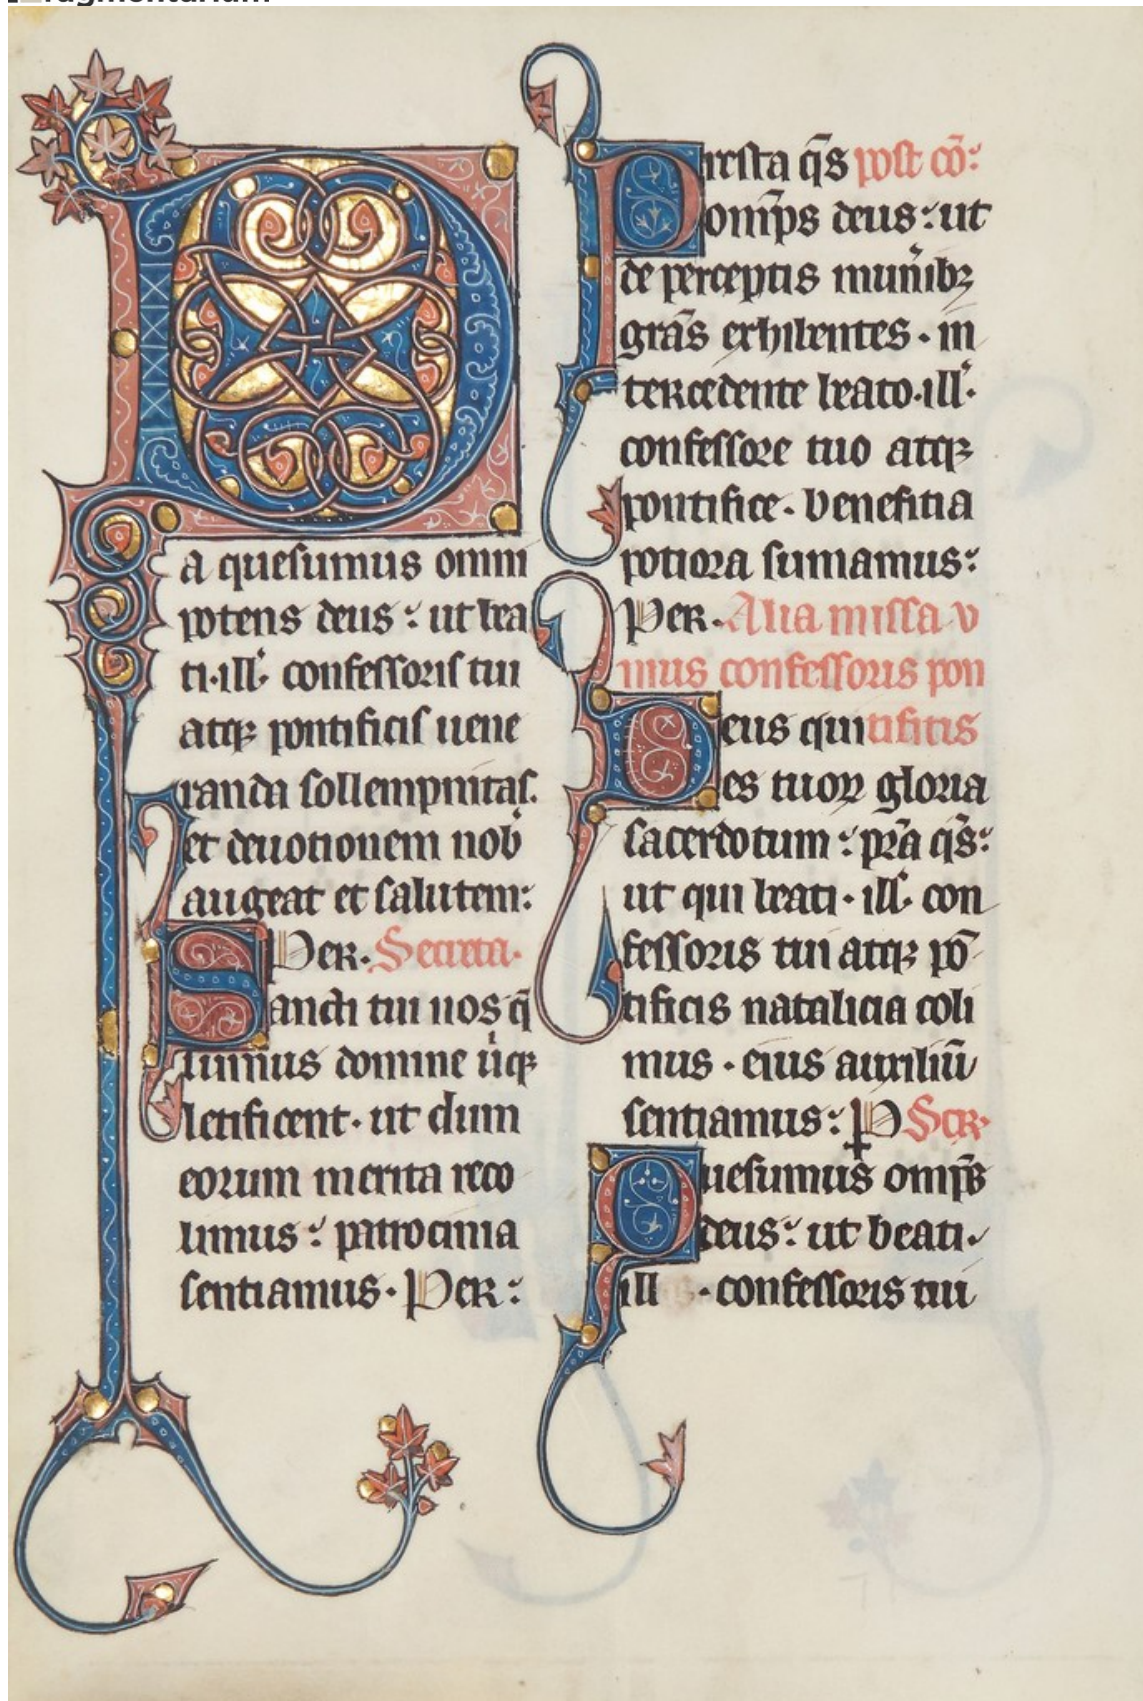 Fragmentarium
Da quesumus omni
potens deus : ut bea
ti · ill' · confessoris tui
atq; pontificis uene
randa sollempnitas .
et deuotionem nob'
augeat et salutem :
Per . Secreta .
Sancti tui nos q̄
sumus domine ubiq;
letificent . ut dum
eorum merita reco
limus : patrocinia
sentiamus . Per :
Presta q̄s post cō :
omp̄s deus : ut
de perceptis munib;
gr̄as exhibentes . in
tercedente beato · ill' ·
confessore tuo atq;
pontifice . benefitia
potiora sumamus :
Per . Alia missa v
nius confessoris pon
Deus qui tificis
es tuoꝝ gloria
sacerdotum : pr̄a q̄s :
ut qui beati · ill' · con
fessoris tui atq; pō
tificis natalicia coli
mus . eius auxiliū
sentiamus : P Secr .
Quesumus omp̄s
deus : ut beati .
ill · confessoris tui